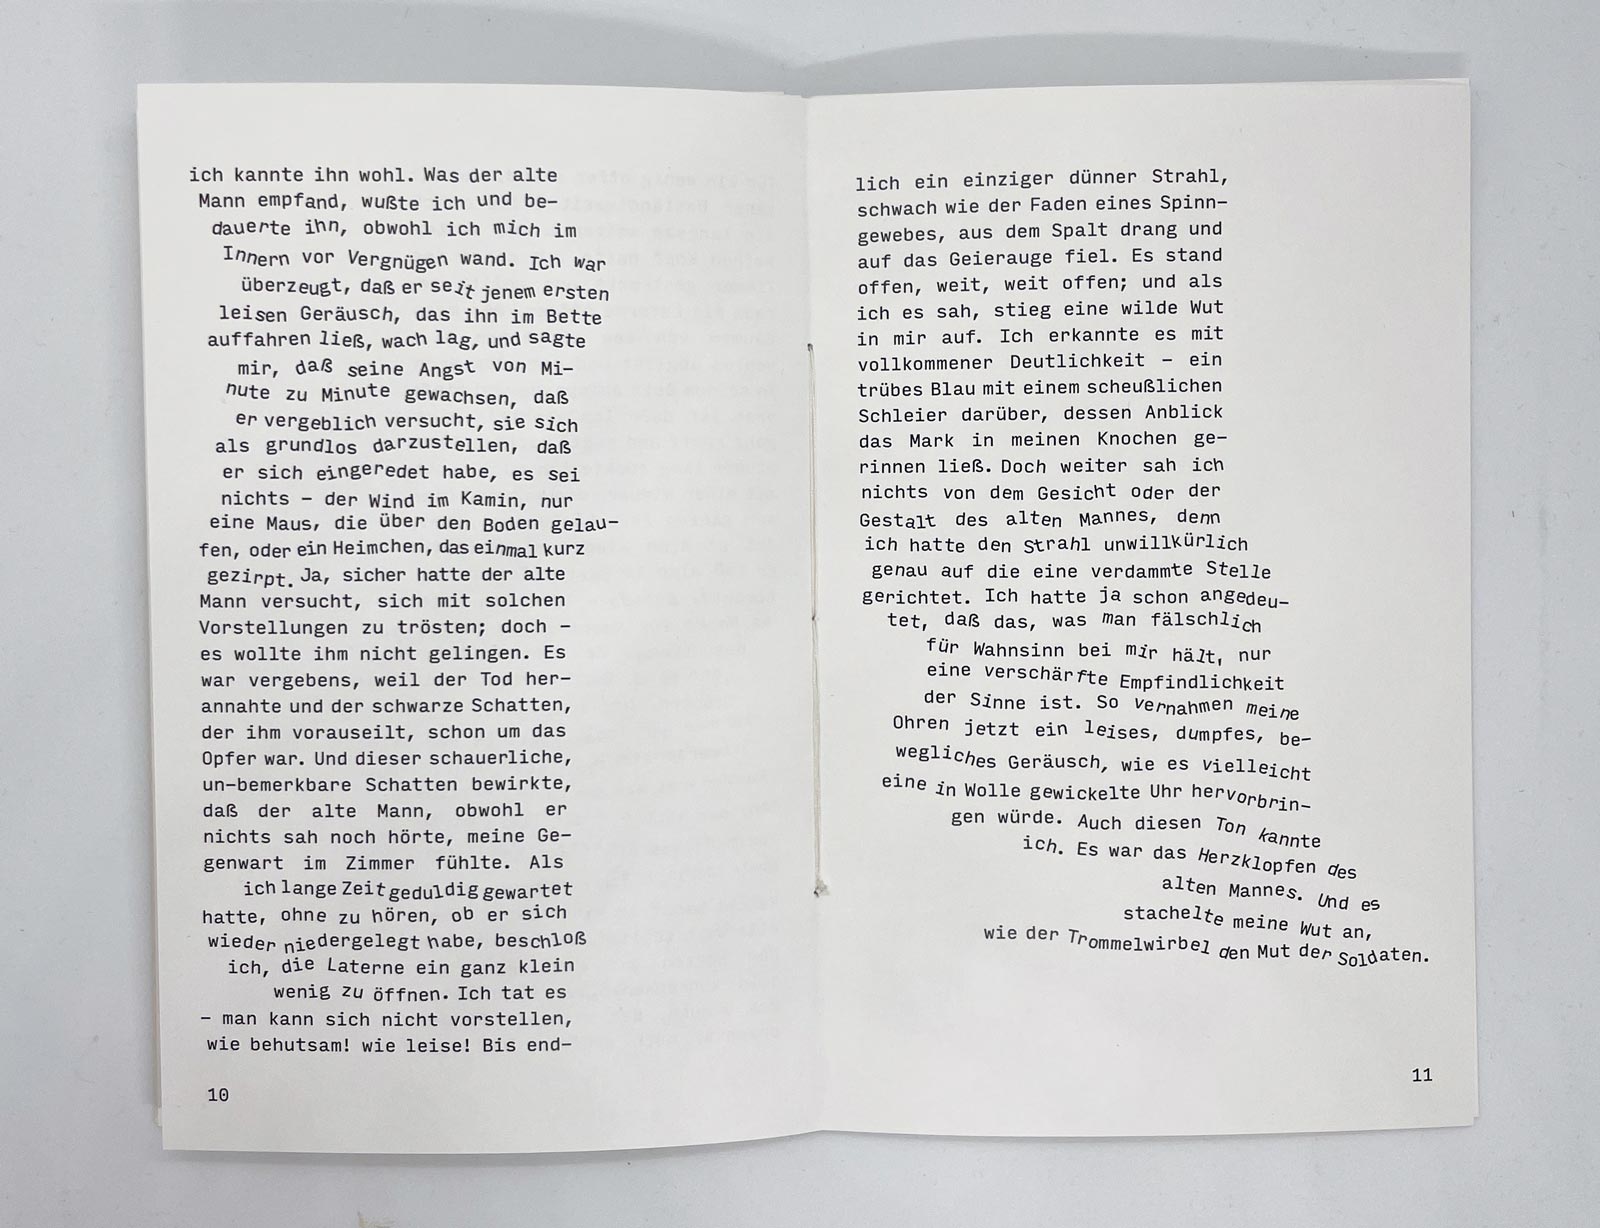 ich kannte ihn wohl. Was der alte
Mann empfand, wußte ich und be–
dauerte ihn, obwohl ich mich im
Innern vor Vergnügen wand. Ich war
überzeugt, daß er seit jenem ersten
leisen Geräusch, das ihn im Bette
auffahren ließ, wach lag, und sagte
mir, daß seine Angst von Mi–
nute zu Minute gewachsen, daß
er vergeblich versucht, sie sich
als grundlos darzustellen, daß
er sich eingeredet habe, es sei
nichts – der Wind im Kamin, nur
eine Maus, die über den Boden gelau–
fen, oder ein Heimchen, das einmal kurz
gezirpt. Ja, sicher hatte der alte
Mann versucht, sich mit solchen
Vorstellungen zu trösten; doch –
es wollte ihm nicht gelingen. Es
war vergebens, weil der Tod her–
annahte und der schwarze Schatten,
der ihm vorauseilt, schon um das
Opfer war. Und dieser schauerliche,
un–bemerkbare Schatten bewirkte,
daß der alte Mann, obwohl er
nichts sah noch hörte, meine Ge–
genwart im Zimmer fühlte. Als
ich lange Zeit geduldig gewartet
hatte, ohne zu hören, ob er sich
wieder niedergelegt habe, beschloß
ich, die Laterne ein ganz klein
wenig zu öffnen. Ich tat es
– man kann sich nicht vorstellen,
wie behutsam! wie leise! Bis end–
10
lich ein einziger dünner Strahl,
schwach wie der Faden eines Spinn–
gewebes, aus dem Spalt drang und
auf das Geierauge fiel. Es stand
offen, weit, weit offen; und als
ich es sah, stieg eine wilde Wut
in mir auf. Ich erkannte es mit
vollkommener Deutlichkeit – ein
trübes Blau mit einem scheußlichen
Schleier darüber, dessen Anblick
das Mark in meinen Knochen ge–
rinnen ließ. Doch weiter sah ich
nichts von dem Gesicht oder der
Gestalt des alten Mannes, denn
ich hatte den Strahl unwillkürlich
genau auf die eine verdammte Stelle
gerichtet. Ich hatte ja schon angedeu–
tet, daß das, was man fälschlich
für Wahnsinn bei mir hält, nur
eine verschärfte Empfindlichkeit
der Sinne ist. So vernahmen meine
Ohren jetzt ein leises, dumpfes, be–
wegliches Geräusch, wie es vielleicht
eine in Wolle gewickelte Uhr hervorbrin–
gen würde. Auch diesen Ton kannte
ich. Es war das Herzklopfen des
alten Mannes. Und es
stachelte meine Wut an,
wie der Trommelwirbel den Mut der Soldaten.
11